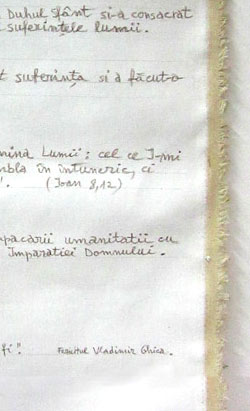 Duhul sfânt si-a consacrat
suferintele lumii.
suferința si a făcut-o
Lumii": cel ce Îmi
în intuneric, ci
(Ioan 8,12)
umanitatii cu
Imparatiei Domnului.
Fericitul Vladimir Ghica.